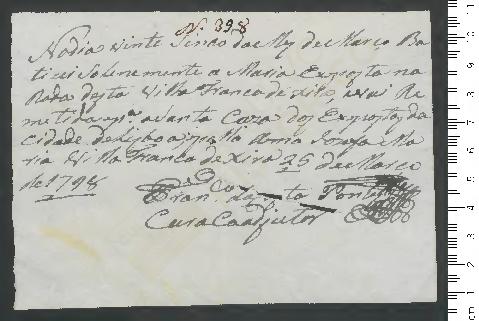 N. 398
No dia vinte Sinco do Mez de Março Ba
tizei Solenemente a Maria Exposta na
Roda desta Villa Franca de Xira, e vai Re
metida a Santa Caza dos Expostos da
Cidade de Lisboa pella Ama Josefa Ma
ria Villa Franca de Xira 25 de Março
de 1798
Fran.co da
Cura Coadjutor